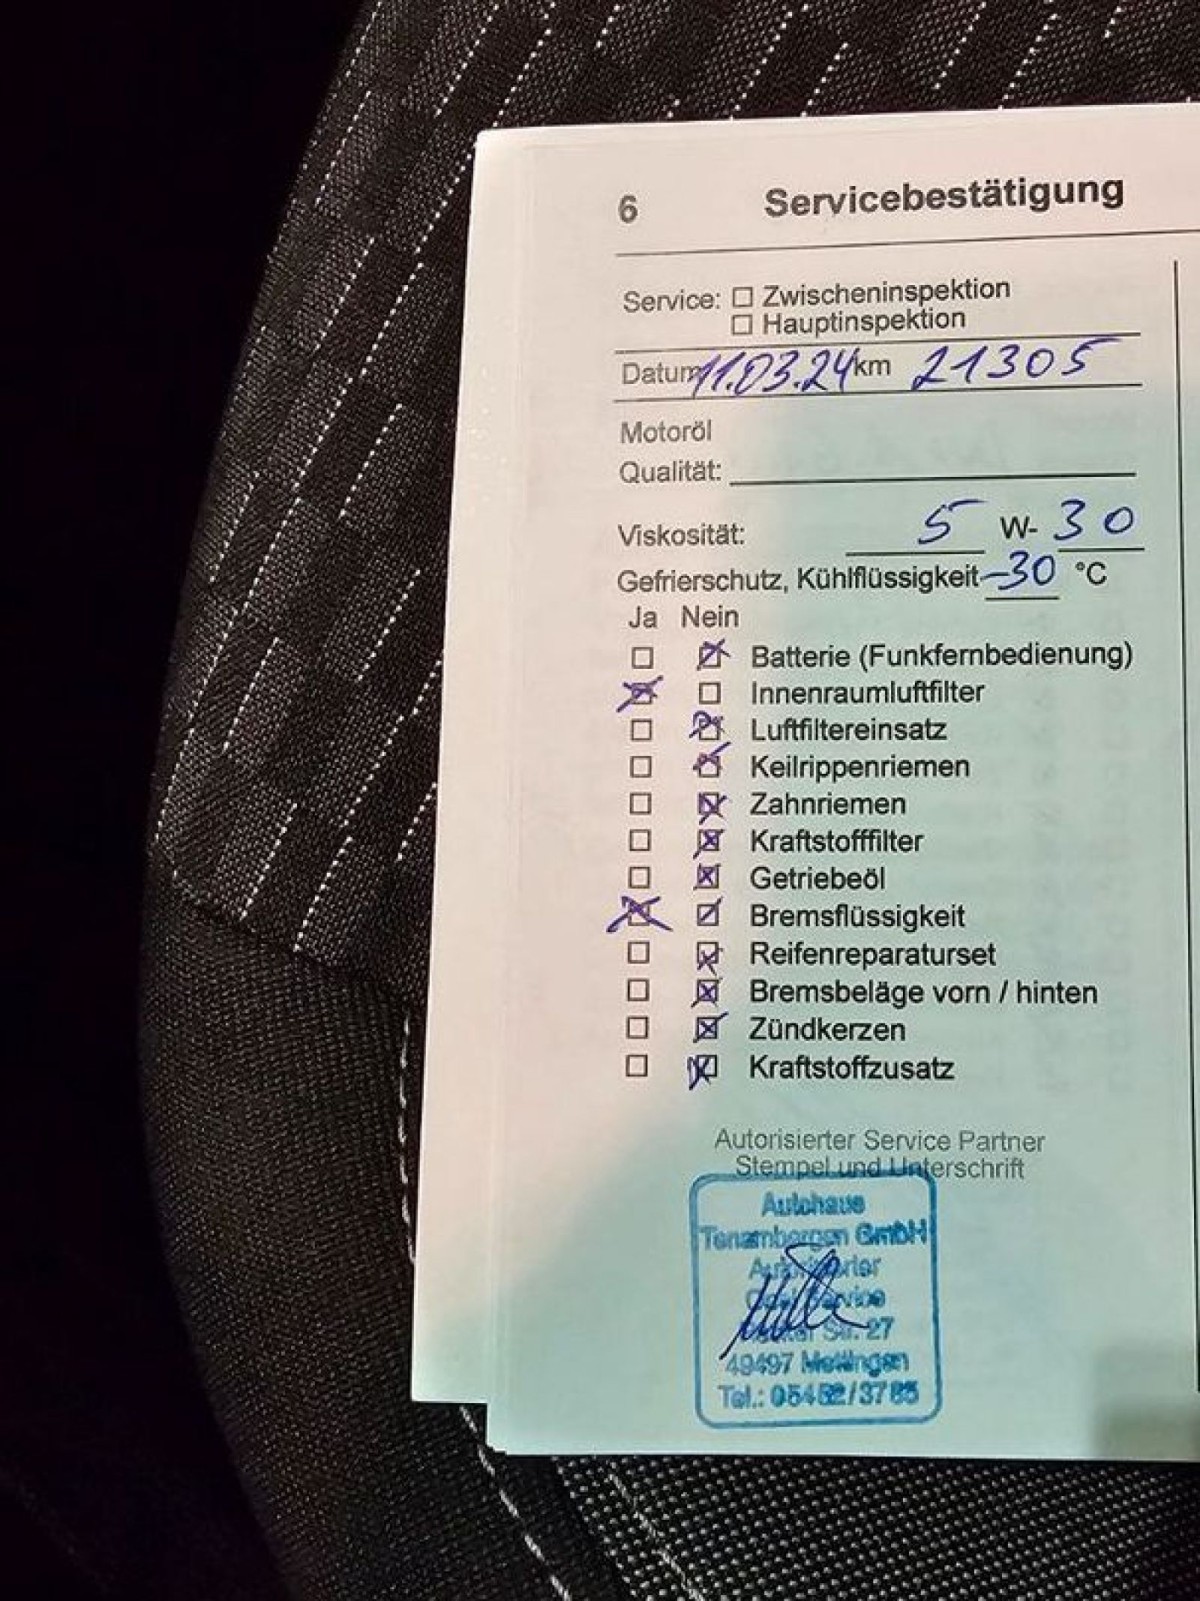 6 Servicebestätigung
Service: ☐ Zwischeninspektion
☐ Hauptinspektion
Datum 11.03.24 km 21305
Motoröl
Qualität:
Viskosität: 5 W- 30
Gefrierschutz, Kühlflüssigkeit -30 °C
Ja Nein
☐ ☒ Batterie (Funkfernbedienung)
☒ ☐ Innenraumluftfilter
☐ ☒ Luftfiltereinsatz
☐ ☒ Keilrippenriemen
☐ ☒ Zahnriemen
☐ ☒ Kraftstofffilter
☐ ☒ Getriebeöl
☒ ☒ Bremsflüssigkeit
☐ ☒ Reifenreparaturset
☐ ☒ Bremsbeläge vorn / hinten
☐ ☒ Zündkerzen
☐ ☒ Kraftstoffzusatz
Autorisierter Service Partner
Stempel und Unterschrift
Autohaus
Tenambergen GmbH
Autorisierter
Opel Service
Str. 27
49497 Mettingen
Tel.: 05452/3785